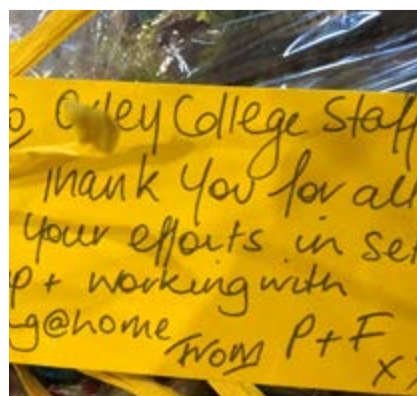 To Oxley College Staff
Thank You for all
your efforts in set
up + working with
g@home From P + F
xx